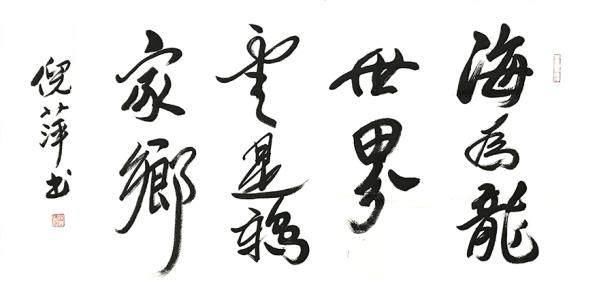 海為龍
世界
雲是鶴
家鄉
倪萍书